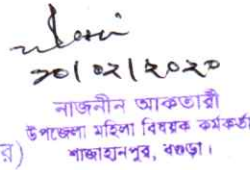 ২০/০২/২০২০
নাজনীন আকতারী
উপজেলা মহিলা বিষয়ক কর্মকর্তা
র) শাজাহানপুর, বগুড়া।